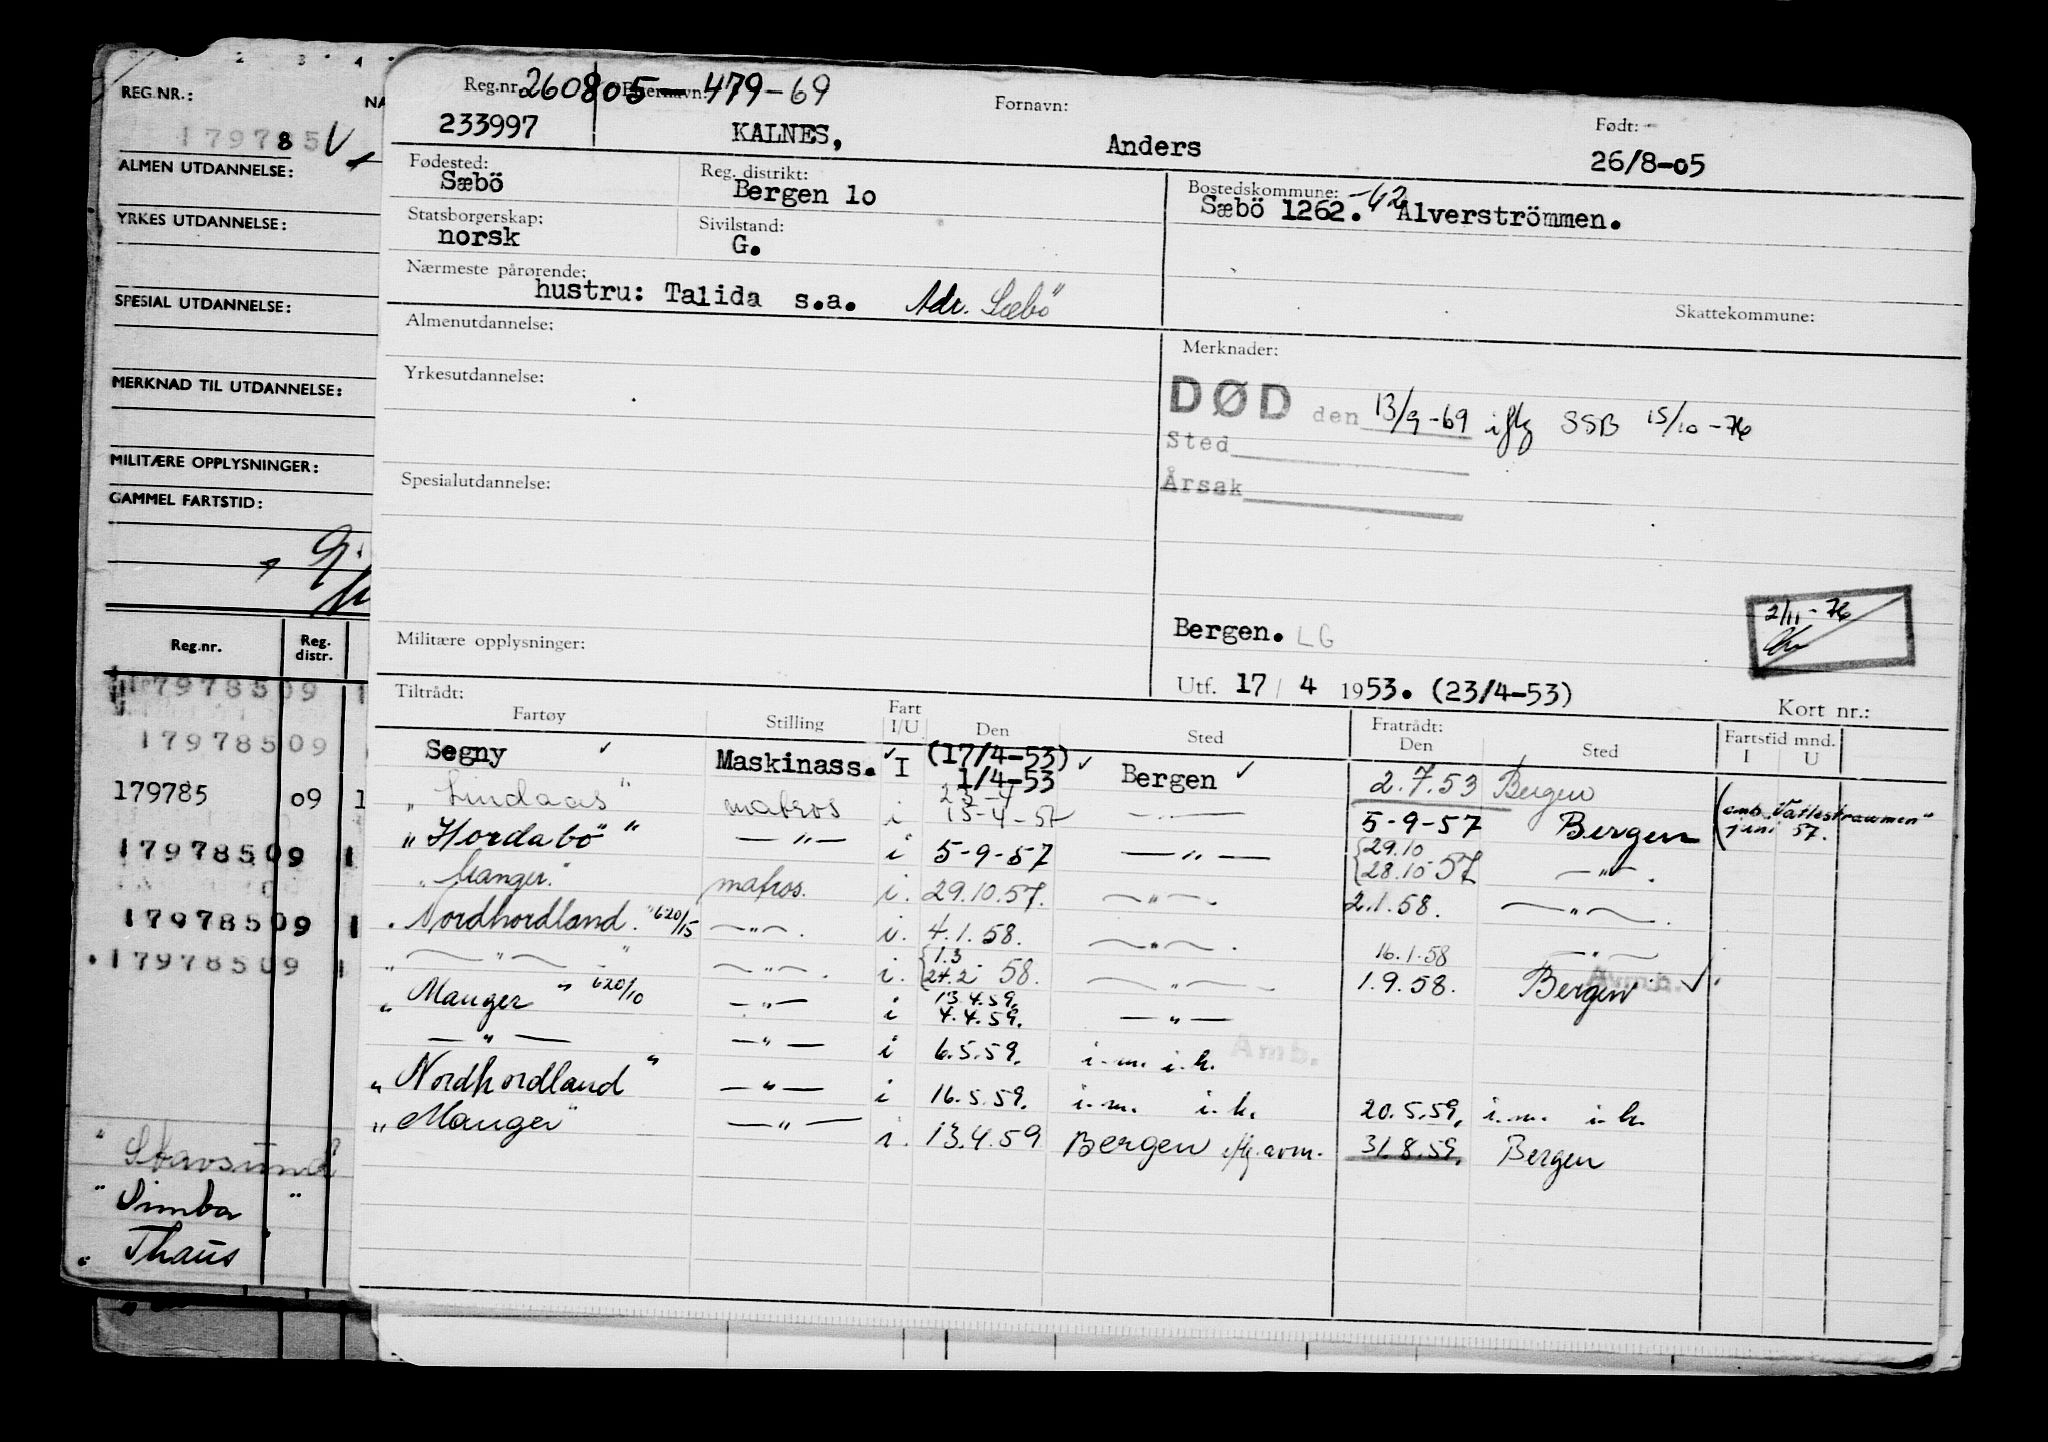 2 3 4
REG.NR.: NA
179785 V
8
ALMEN UTDANNELSE:
YRKES UTDANNELSE:
SPESIAL UTDANNELSE:
MERKNAD TIL UTDANNELSE:
MILITÆRE OPPLYSNINGER:
GAMMEL FARTSTID:
Reg.nr. Reg. distr.
179785 09 1
179785 09
179785 09 1
179785 09 1
179785 09 1
179785 09 1
" Stavsund "
" Simba "
" Thaus "
Reg.nr. 260805 Etternavn: 479-69 Fornavn: Født:
233997 KALNES, Anders 26/8-05
Fødested: Reg. distrikt: Bostedskommune:
Sæbö Bergen 10 Sæbö 1262. -42 Alverströmmen.
Statsborgerskap: Sivilstand:
norsk G.
Nærmeste pårørende:
hustru: Talida s.a. Adr. Sæbö
Skattekommune:
Almenutdannelse: Merknader:
Yrkesutdannelse:
DØD den 13/9-69 iflg SSB 15/10-76
Sted
Årsak
Spesialutdannelse:
2/11-76
Bergen. LG
Militære opplysninger:
Utf. 17 / 4 1953. (23/4-53)
Kort nr.:
Tiltrådt: Fratrådt:
Fartøy Stilling Fart I/U Den Sted Den Sted Fartstid mnd. I U
Segny ✓ Maskinass. ✓ I (17/4-53) 1/4-53 ✓ Bergen ✓ 2.7.53 Bergen
" Lindaas " matros i 23-4 15-4-57 — 5-9-57 Bergen (omb. "Vatlestraumen" juni 57.
" Hordabö " — " — i 5-9-57 — " — {29.10 28.10 57 — " — .
" Manger. " matros. i. 29.10.57. — " — . 2.1.58. — " — .
" Nordhordland. " 620/15 — " — . i. 4.1.58. — " — . 16.1.58 — " —
" — " — " — " — . i. {1.3 24.2 58. — " — 1.9.58. Bergen Avm.b. ✓.
" Manger " 620/10 — " — i 13.4.59. 4.4.59. — " —
— " — — " — i 6.5.59. i.m. i.h. Amb.
" Nordhordland " — " — i 16.5.59. i.m. i.h. 20.5.59. i.m. i.h.
" Manger " — " — i. 13.4.59 Bergen iflg. avm. 31.8.59. Bergen